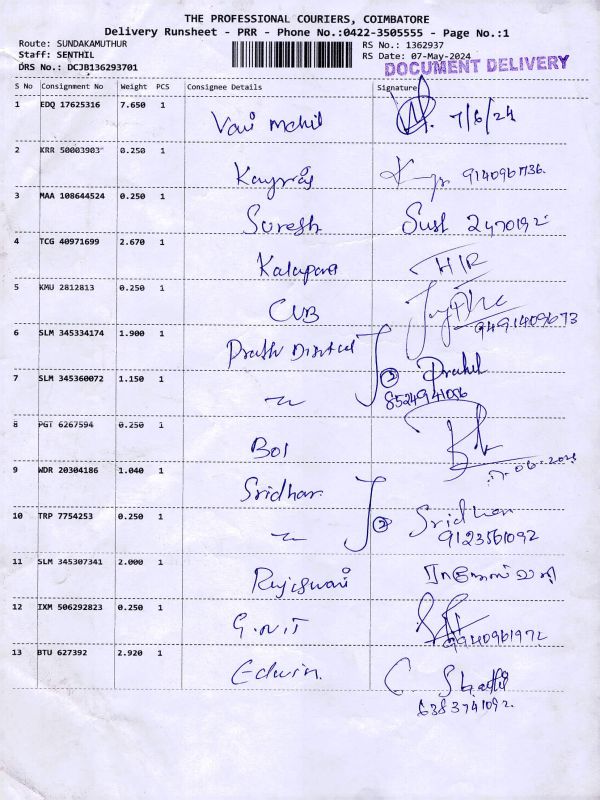 THE PROFESSIONAL COURIERS, COIMBATORE
Delivery Runsheet - PRR - Phone No.:0422-3505555 - Page No.:1
Route: SUNDAKAMUTHUR RS No.: 1362937
Staff: SENTHIL RS Date: 07-May-2024
DRS No.: DCJB136293701 DOCUMENT DELIVERY
S No Consignment No Weight PCS Consignee Details Signature
1 EDQ 17625316 7.650 1
7/6/24
2 KRR 50003903 0.250 1
3 MAA 108644524 0.250 1
Suresh
4 TCG 40971699 2.670 1
5 KMU 2812813 0.250 1
CUB
9491409673
6 SLM 345334174 1.900 1
7 SLM 345360072 1.150 1
2
8524941056
8 PGT 6267594 0.250 1
BOI
9 WDR 20304186 1.040 1
Sridhar
10 TRP 7754253 0.250 1
2 Sridhar
9123561092
11 SLM 345307341 2.000 1
12 IXM 506292823 0.250 1
G.N.T
9940961972
13 BTU 627392 2.920 1
Edwin
6383741092.